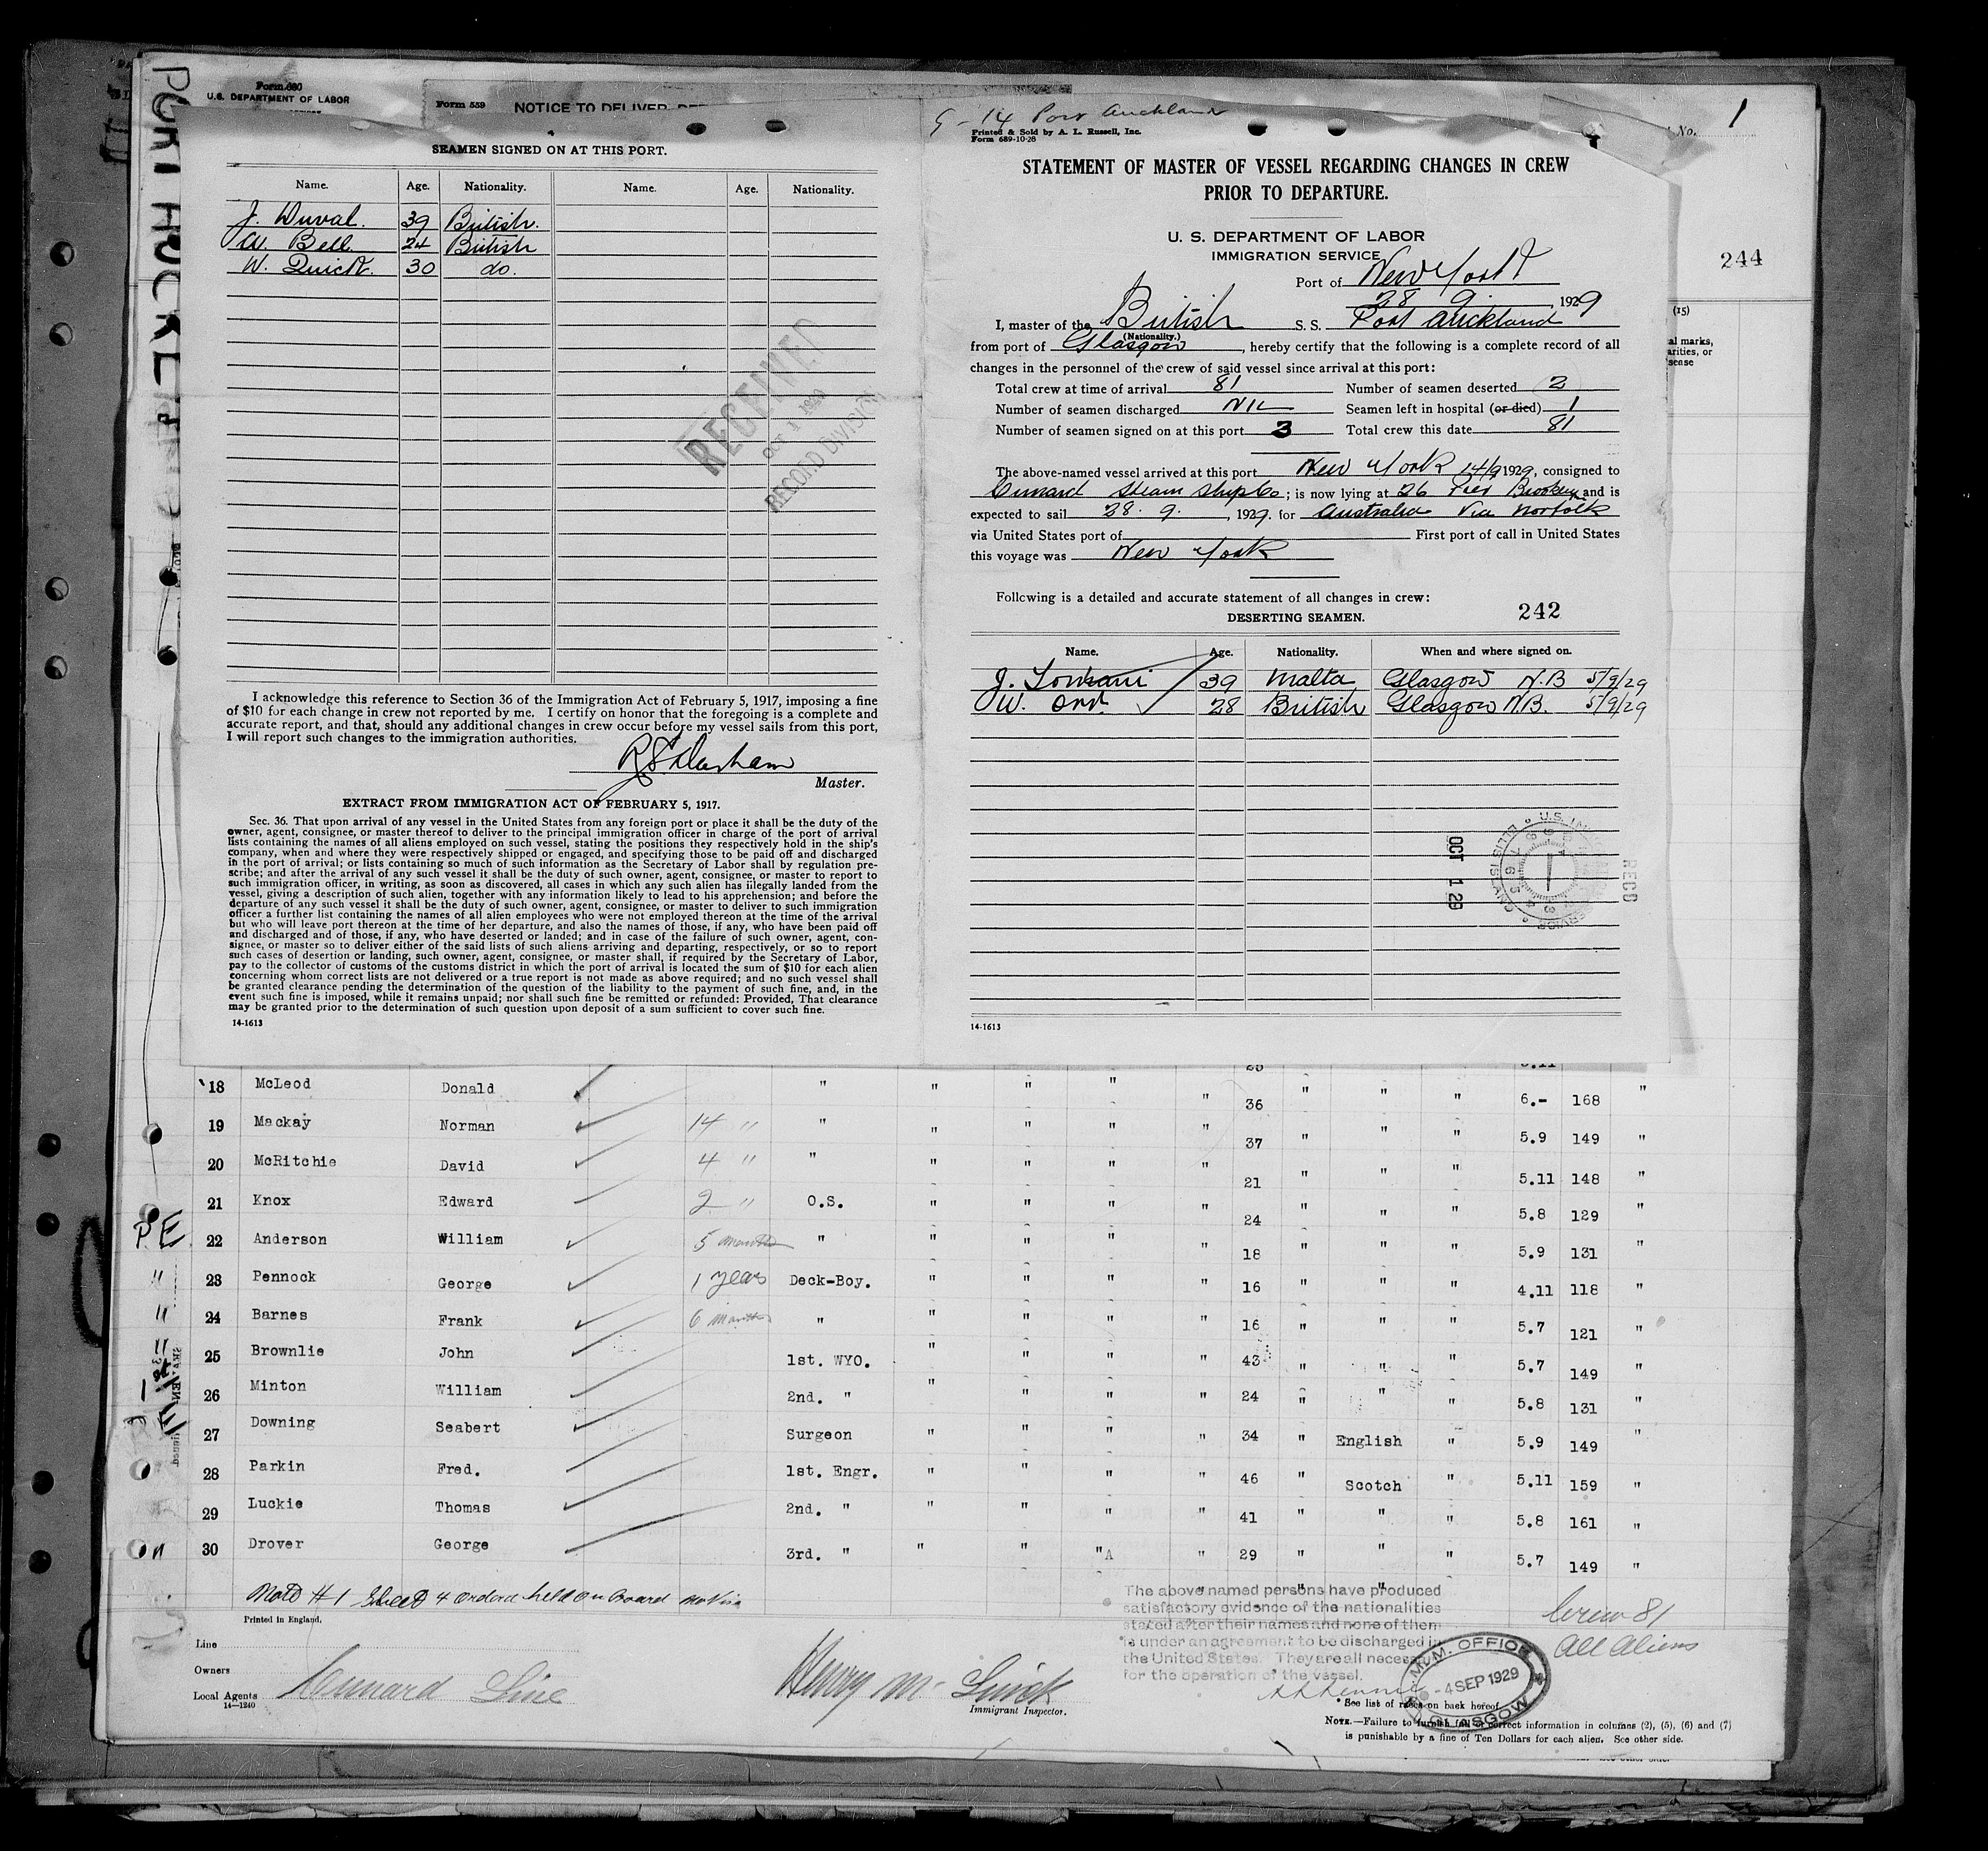 PORT AUCKL
Form 680
U.S. DEPARTMENT OF LABOR
Form 559 NOTICE TO DELIVER,
SEAMEN SIGNED ON AT THIS PORT.
Name. Age. Nationality. Name. Age. Nationality.
J. Duval. 39 British.
W. Bell 24 British
W. Quick. 30 do.
RECEIVED
OCT 1 1929
RECORD DIVISION
I acknowledge this reference to Section 36 of the Immigration Act of February 5, 1917, imposing a fine
of $10 for each change in crew not reported by me. I certify on honor that the foregoing is a complete and
accurate report, and that, should any additional changes in crew occur before my vessel sails from this port,
I will report such changes to the immigration authorities.
Master.
EXTRACT FROM IMMIGRATION ACT OF FEBRUARY 5, 1917.
Sec. 36. That upon arrival of any vessel in the United States from any foreign port or place it shall be the duty of the
owner, agent, consignee, or master thereof to deliver to the principal immigration officer in charge of the port of arrival
lists containing the names of all aliens employed on such vessel, stating the positions they respectively hold in the ship's
company, when and where they were respectively shipped or engaged, and specifying those to be paid off and discharged
in the port of arrival; or lists containing so much of such information as the Secretary of Labor shall by regulation pre-
scribe; and after the arrival of any such vessel it shall be the duty of such owner, agent, consignee, or master to report to
such immigration officer, in writing, as soon as discovered, all cases in which any such alien has illegally landed from the
vessel, giving a description of such alien, together with any information likely to lead to his apprehension; and before the
departure of any such vessel it shall be the duty of such owner, agent, consignee, or master to deliver to such immigration
officer a further list containing the names of all alien employees who were not employed thereon at the time of the arrival
but who will leave port thereon at the time of her departure, and also the names of those, if any, who have been paid off
and discharged and of those, if any, who have deserted or landed; and in case of the failure of such owner, agent, con-
signee, or master so to deliver either of the said lists of such aliens arriving and departing, respectively, or so to report
such cases of desertion or landing, such owner, agent, consignee, or master shall, if required by the Secretary of Labor,
pay to the collector of customs of the customs district in which the port of arrival is located the sum of $10 for each alien
concerning whom correct lists are not delivered or a true report is not made as above required; and no such vessel shall
be granted clearance pending the determination of the question of the liability to the payment of such fine, and, in the
event such fine is imposed, while it remains unpaid; nor shall such fine be remitted or refunded: Provided, That clearance
may be granted prior to the determination of such question upon deposit of a sum sufficient to cover such fine.
14-1613
9-14 Port Auckland
Printed & Sold by A. L. Russell, Inc.
Form 689-10-28
STATEMENT OF MASTER OF VESSEL REGARDING CHANGES IN CREW
PRIOR TO DEPARTURE.
U. S. DEPARTMENT OF LABOR
IMMIGRATION SERVICE
Port of New York
28 9 , 1929
I, master of the British S. S. Port Auckland
(Nationality.)
from port of Glasgow, hereby certify that the following is a complete record of all
changes in the personnel of the crew of said vessel since arrival at this port:
Total crew at time of arrival 81 Number of seamen deserted 2
Number of seamen discharged NIL Seamen left in hospital (or died) 1
Number of seamen signed on at this port 3 Total crew this date 81
The above-named vessel arrived at this port New York 14/9 1929, consigned to
Cunard Steam Ship Co; is now lying at 26 Pier Brooklyn and is
expected to sail 28. 9. , 1929. for Australia Via Norfolk
via United States port of First port of call in United States
this voyage was New York
Following is a detailed and accurate statement of all changes in crew:
DESERTING SEAMEN. 242
Name. Age. Nationality. When and where signed on.
J. 39 Malta Glasgow N.B 5/9/29
W. Orr 28 British Glasgow N.B. 5/9/29
OCT 1 29
RECD
14-1613
No. 1
244
(15)
al marks,
arities, or
sense
18 McLeod Donald " " " " " 36 " " " 6.- 168 "
19 Mackay Norman 14 " " " " " " 37 " " " 5.9 149 "
20 McRitchie David 4 " " " " " " 21 " " " 5.11 148 "
21 Knox Edward 2 " O.S. " " " " 24 " " " 5.8 129 "
22 Anderson William 5 months " " " " " 18 " " " 5.9 131 "
23 Pennock George 1 year Deck-Boy. " " " " 16 " " " 4.11 118 "
24 Barnes Frank 6 months " " " " " 16 " " " 5.7 121 "
25 Brownlie John 1st. WYO. " " " " 43 " " " 5.7 149 "
26 Minton William 2nd. " " " " " 24 " " " 5.8 131 "
27 Downing Seabert Surgeon " " " " 34 " English " 5.9 149 "
28 Parkin Fred. 1st. Engr. " " " " 46 " Scotch " 5.11 159 "
29 Luckie Thomas 2nd. " " " " " 41 " " " 5.8 161 "
30 Drover George 3rd. " " " " " 29 " " " 5.7 149 "
P.E.
Note #1 Sheet 4 ordered held on board no Visa
Printed in England.
Line
Owners
Local Agents Cunard Line
14—1240
Immigrant Inspector.
The above named persons have produced
satisfactory evidence of the nationalities
stated after their names and none of them
is under an agreement to be discharged in
the United States. They are all necessary
for the operation of the vessel.
M.M. OFFICE
-4 SEP 1929
GLASGOW
Crew 81
All Aliens
* See list of races on back hereof.
NOTE.—Failure to furnish full or correct information in columns (2), (5), (6) and (7)
is punishable by a fine of Ten Dollars for each alien. See other side.